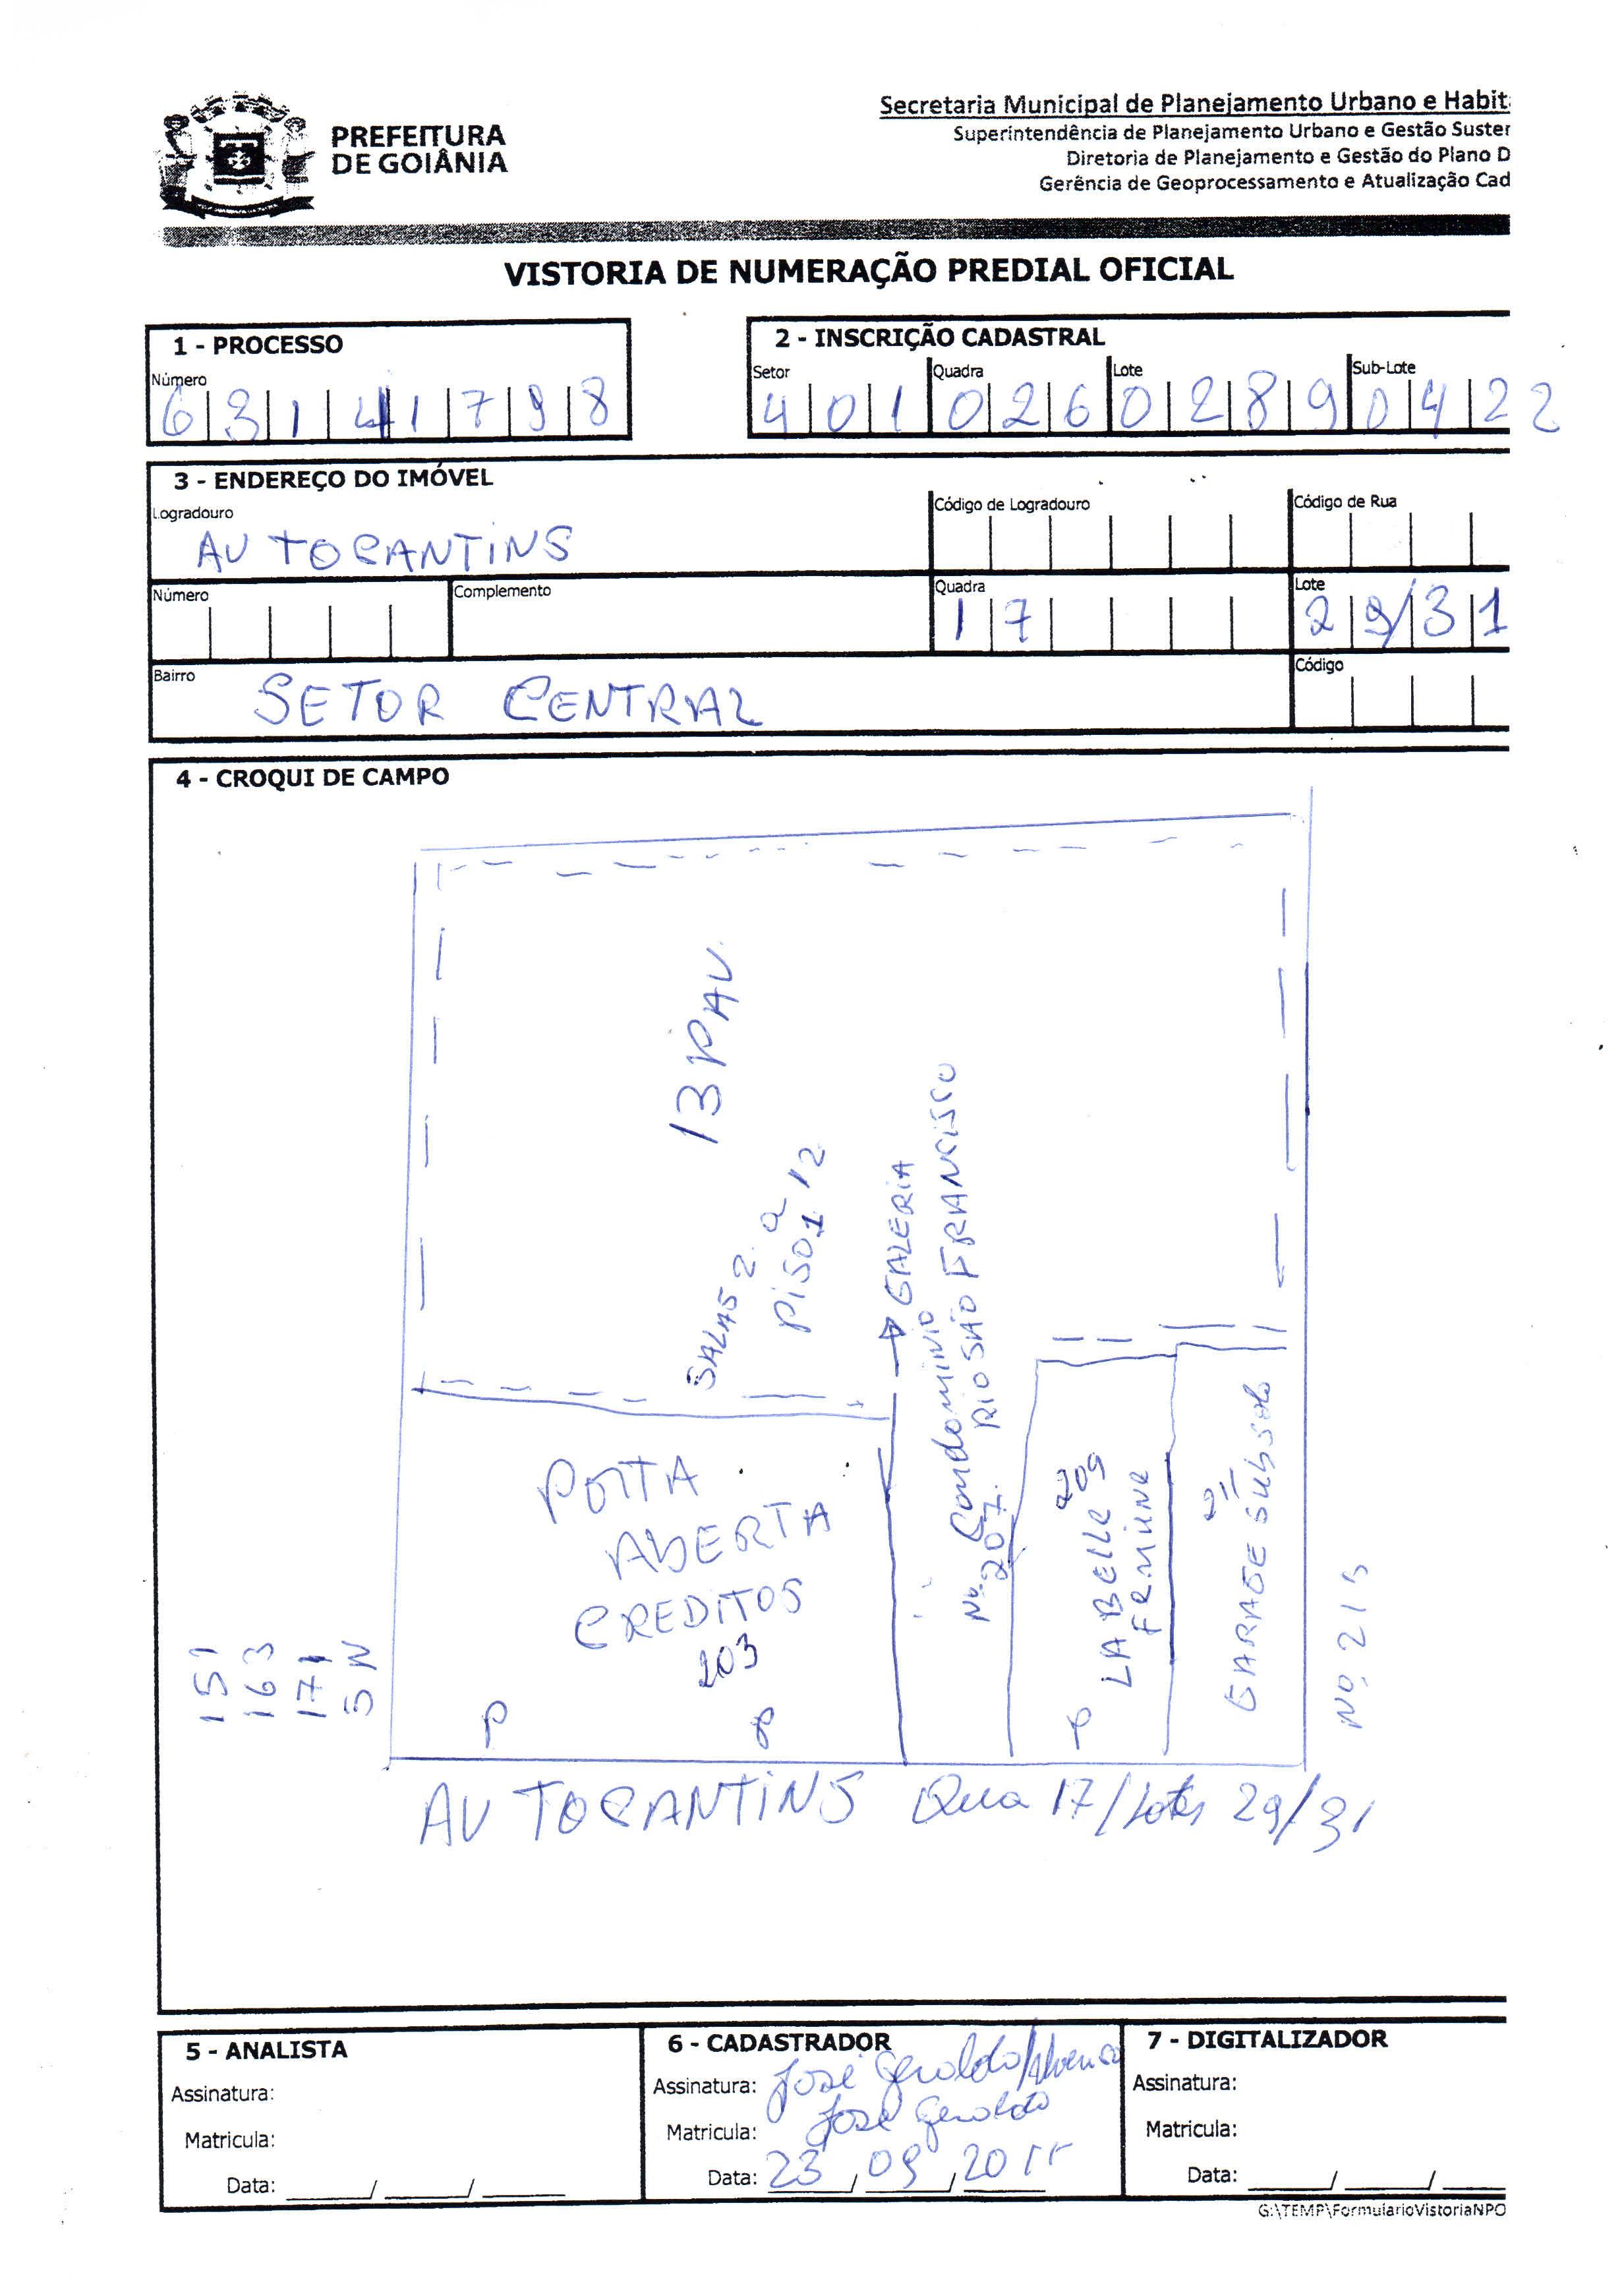 PREFEITURA
DE GOIÂNIA
Secretaria Municipal de Planejamento Urbano e Habit
Superintendência de Planejamento Urbano e Gestão Suster
Diretoria de Planejamento e Gestão do Plano D
Gerência de Geoprocessamento e Atualização Cad
VISTORIA DE NUMERAÇÃO PREDIAL OFICIAL
1 - PROCESSO
Número
6 3 1 4 1 7 9 8
2 - INSCRIÇÃO CADASTRAL
Setor Quadra Lote Sub-Lote
4 0 1 0 2 6 0 2 8 9 0 4 2 2
3 - ENDEREÇO DO IMÓVEL
Logradouro
AV TOCANTINS
Código de Logradouro
Código de Rua
Número
Complemento
Quadra
17
Lote
29/31
Bairro
SETOR CENTRAL
Código
4 - CROQUI DE CAMPO
13 PAV
SALAS 2 a 12
PISO 1
GALERIA
Condominio
RIO SÃO FRANCISCO
Nº 207
PORTA
ABERTA
CREDITOS
203
209
LA BELLE
211
GARAGE SUBSOLO
Nº 215
151
163
171
SN
P
AV TOCANTINS Qua 17/Lotes 29/31
5 - ANALISTA
Assinatura:
Matricula:
Data: / /
6 - CADASTRADOR
Assinatura: José Geraldo
Matricula: José Geraldo
Data: 23 / 09 / 2015
7 - DIGITALIZADOR
Assinatura:
Matricula:
Data: / /
G:\TEMP\FormularioVistoriaNPO